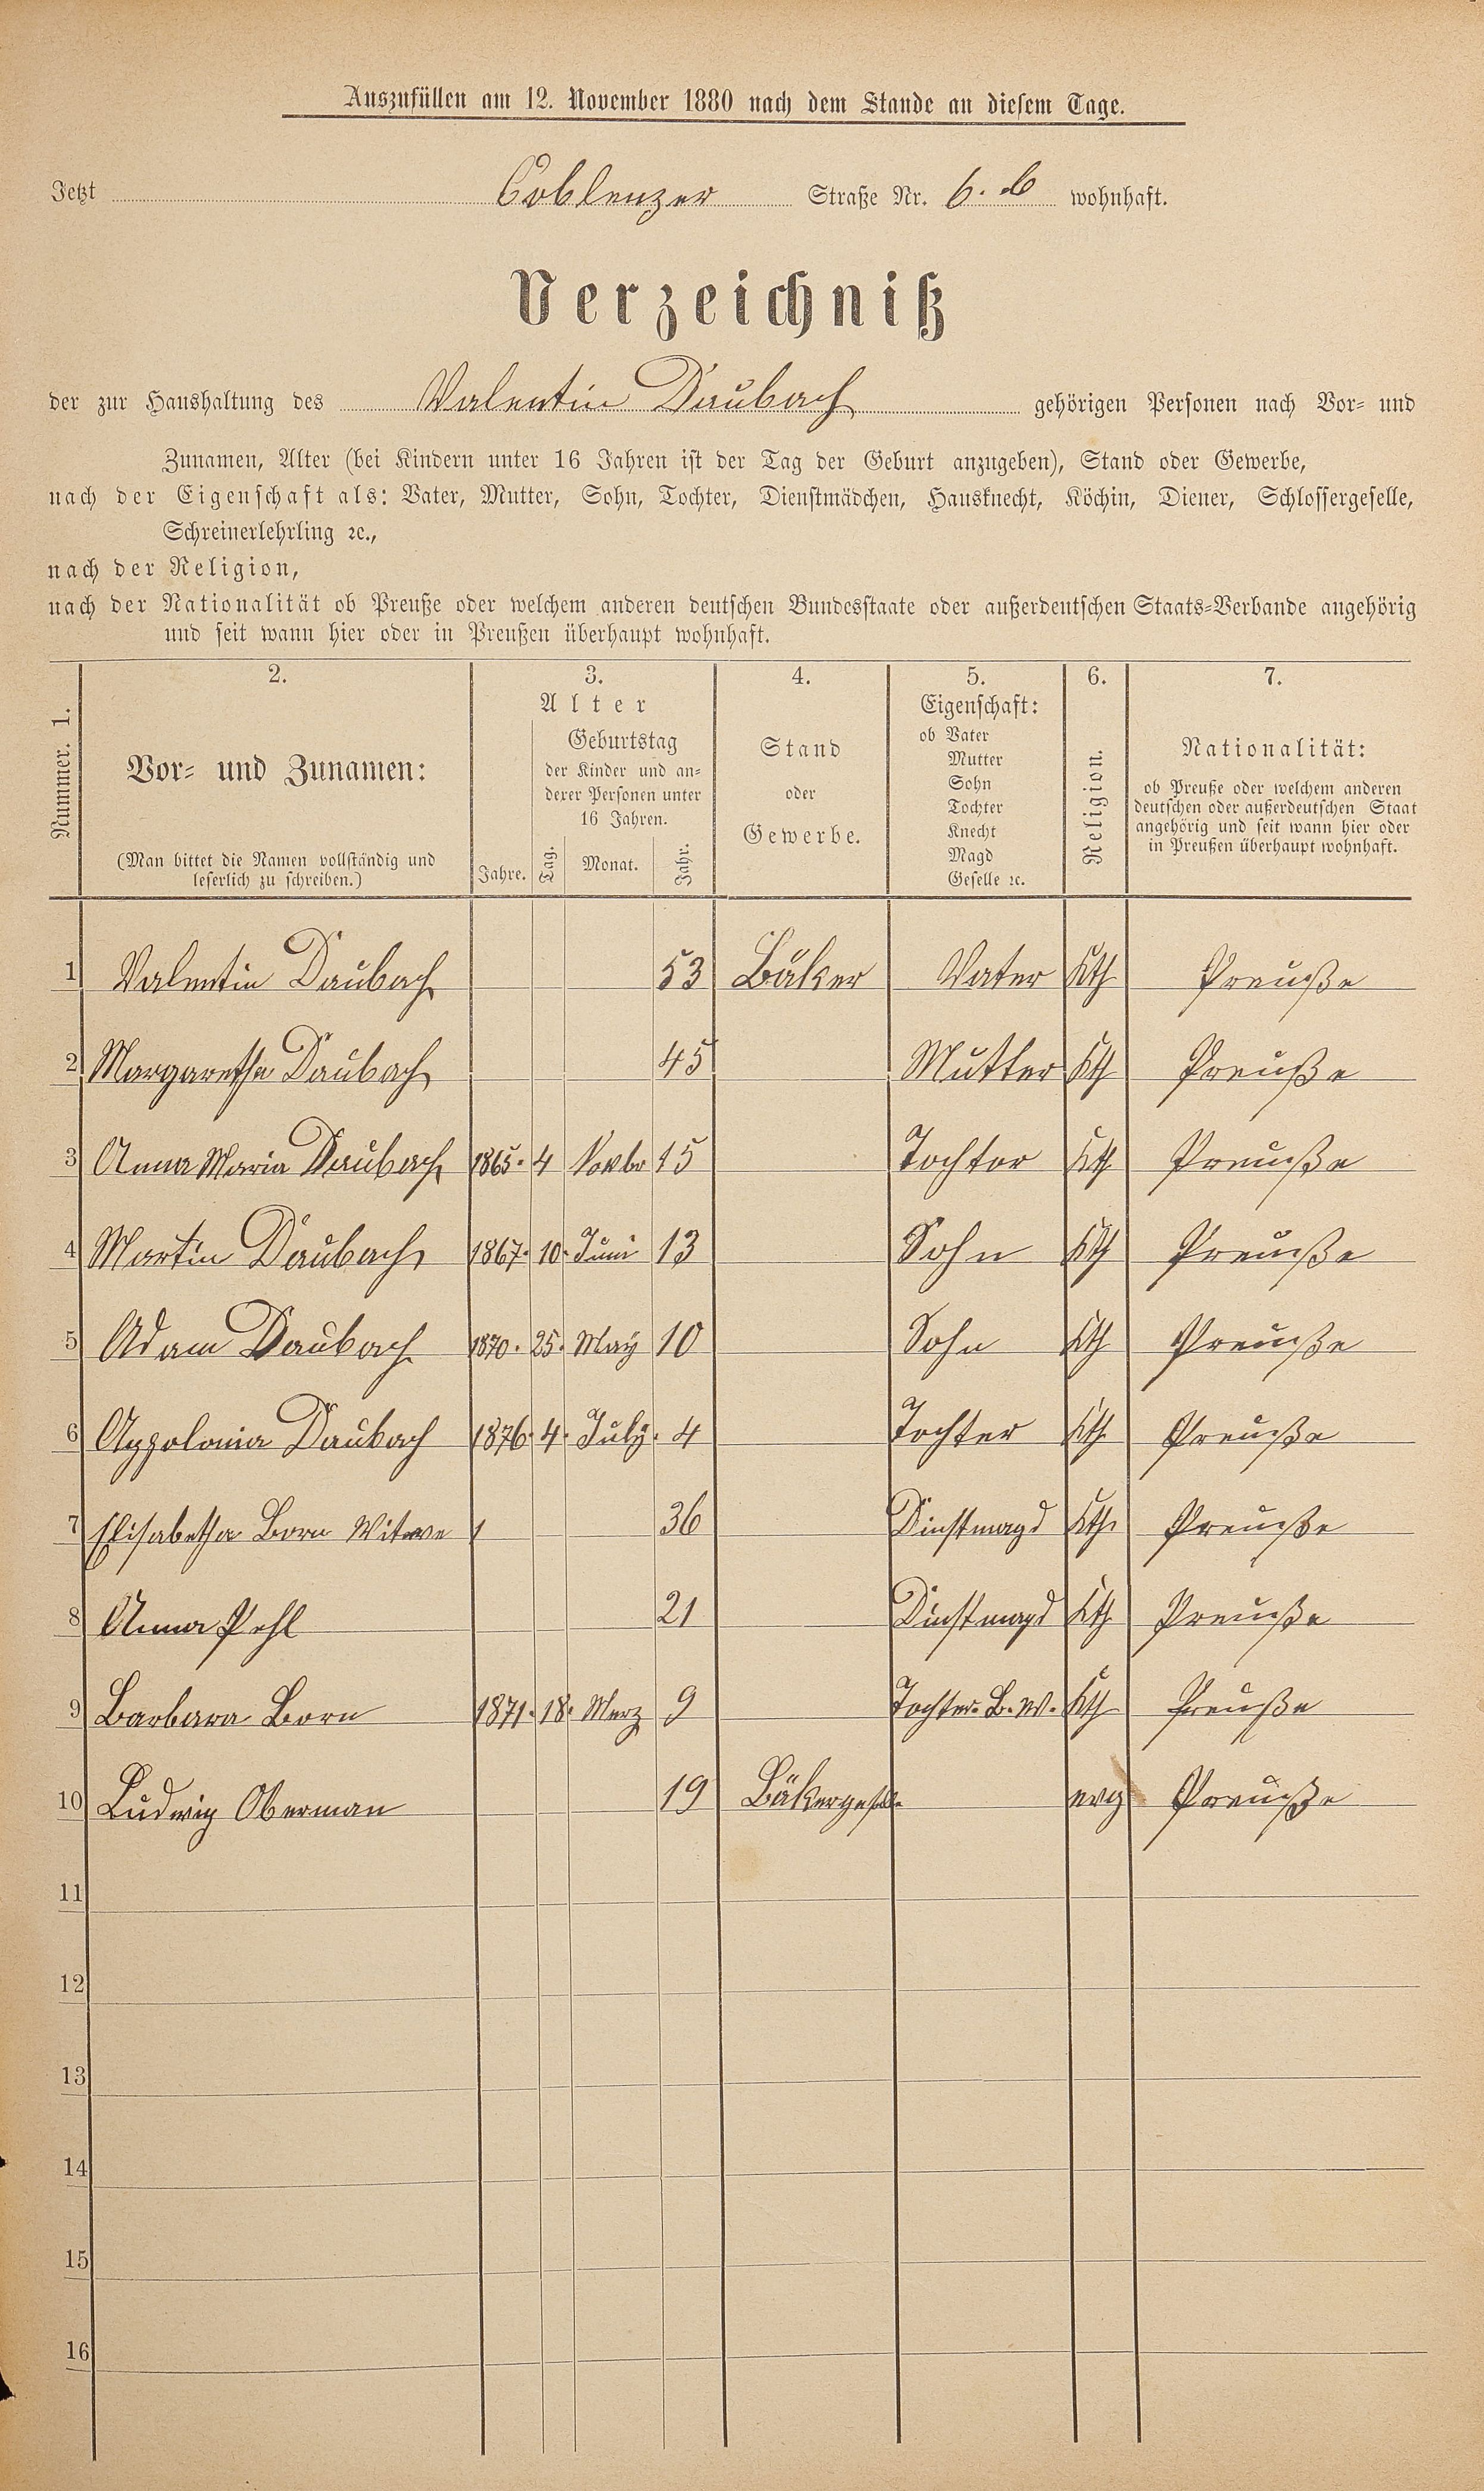 Auszufüllen am 12. November 1880 nach dem Stande an diesem Tage.
Jetzt Coblenzer Straße Nr. 6. b wohnhaft.
Verzeichniß
der zur Haushaltung des Valentin Daubach gehörigen Personen nach Vor- und
Zunamen, Alter (bei Kindern unter 16 Jahren ist der Tag der Geburt anzugeben), Stand oder Gewerbe,
nach der Eigenschaft als: Vater, Mutter, Sohn, Tochter, Dienstmädchen, Hausknecht, Köchin, Diener, Schlossergeselle,
Schreinerlehrling ꝛc.,
nach der Religion,
nach der Nationalität ob Preuße oder welchem anderen deutschen Bundesstaate oder außerdeutschen Staats-Verbande angehörig
und seit wann hier oder in Preußen überhaupt wohnhaft.
Nummer. 1.
2.
Vor- und Zunamen:
(Man bittet die Namen vollständig und
leserlich zu schreiben.)
3.
Alter
Jahre.
Geburtstag
der Kinder und an-
derer Personen unter
16 Jahren.
Tag. Monat. Jahr.
4.
Stand
oder
Gewerbe.
5.
Eigenschaft:
ob Vater
Mutter
Sohn
Tochter
Knecht
Magd
Geselle ꝛc.
6.
Religion.
7.
Nationalität:
ob Preuße oder welchem anderen
deutschen oder außerdeutschen Staat
angehörig und seit wann hier oder
in Preußen überhaupt wohnhaft.
1 Valentin Daubach 53 Bäker Vater Kth Preuße
2 Margaretha Daubach 45 Mutter Kth Preuße
3 Anna Maria Daubach 1865. 4 Novbr 15 Tochter Kth Preuße
4 Martin Daubach 1867. 10. Juni 13 Sohn Kth Preuße
5 Adam Daubach 1870. 25. May 10 Sohn Kth Preuße
6 Appolonia Daubach 1876. 4. July. 4 Tochter Kth Preuße
7 Elisabetha Born Witwe 36 Dinstmagd Kth. Preuße
8 Anna Pehl 21 Dinstmagd Kth Preuße
9 Barbara Born 1871. 18. Merz 9 Tochter. B. W. Kth Preuße
10 Ludwig Oberman 19 Bäkergeselle evg Preuße
11
12
13
14
15
16